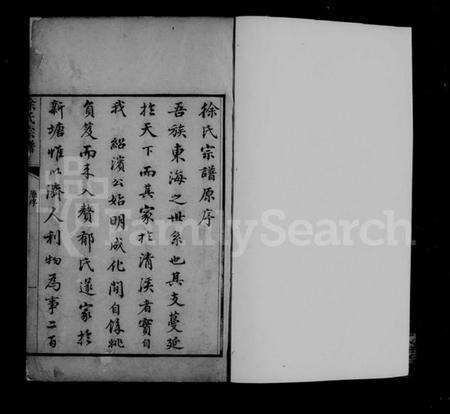 徐氏宗譜原序
吾族東海之世系也其支蔓延
於天下而其家於清溪者實自
我 紹濱公始明成化間自馀姚
負笈而來入贅郁氏遂家於
新塘惟以濟人利物為事二百
徐氏宗譜
FamilySearch